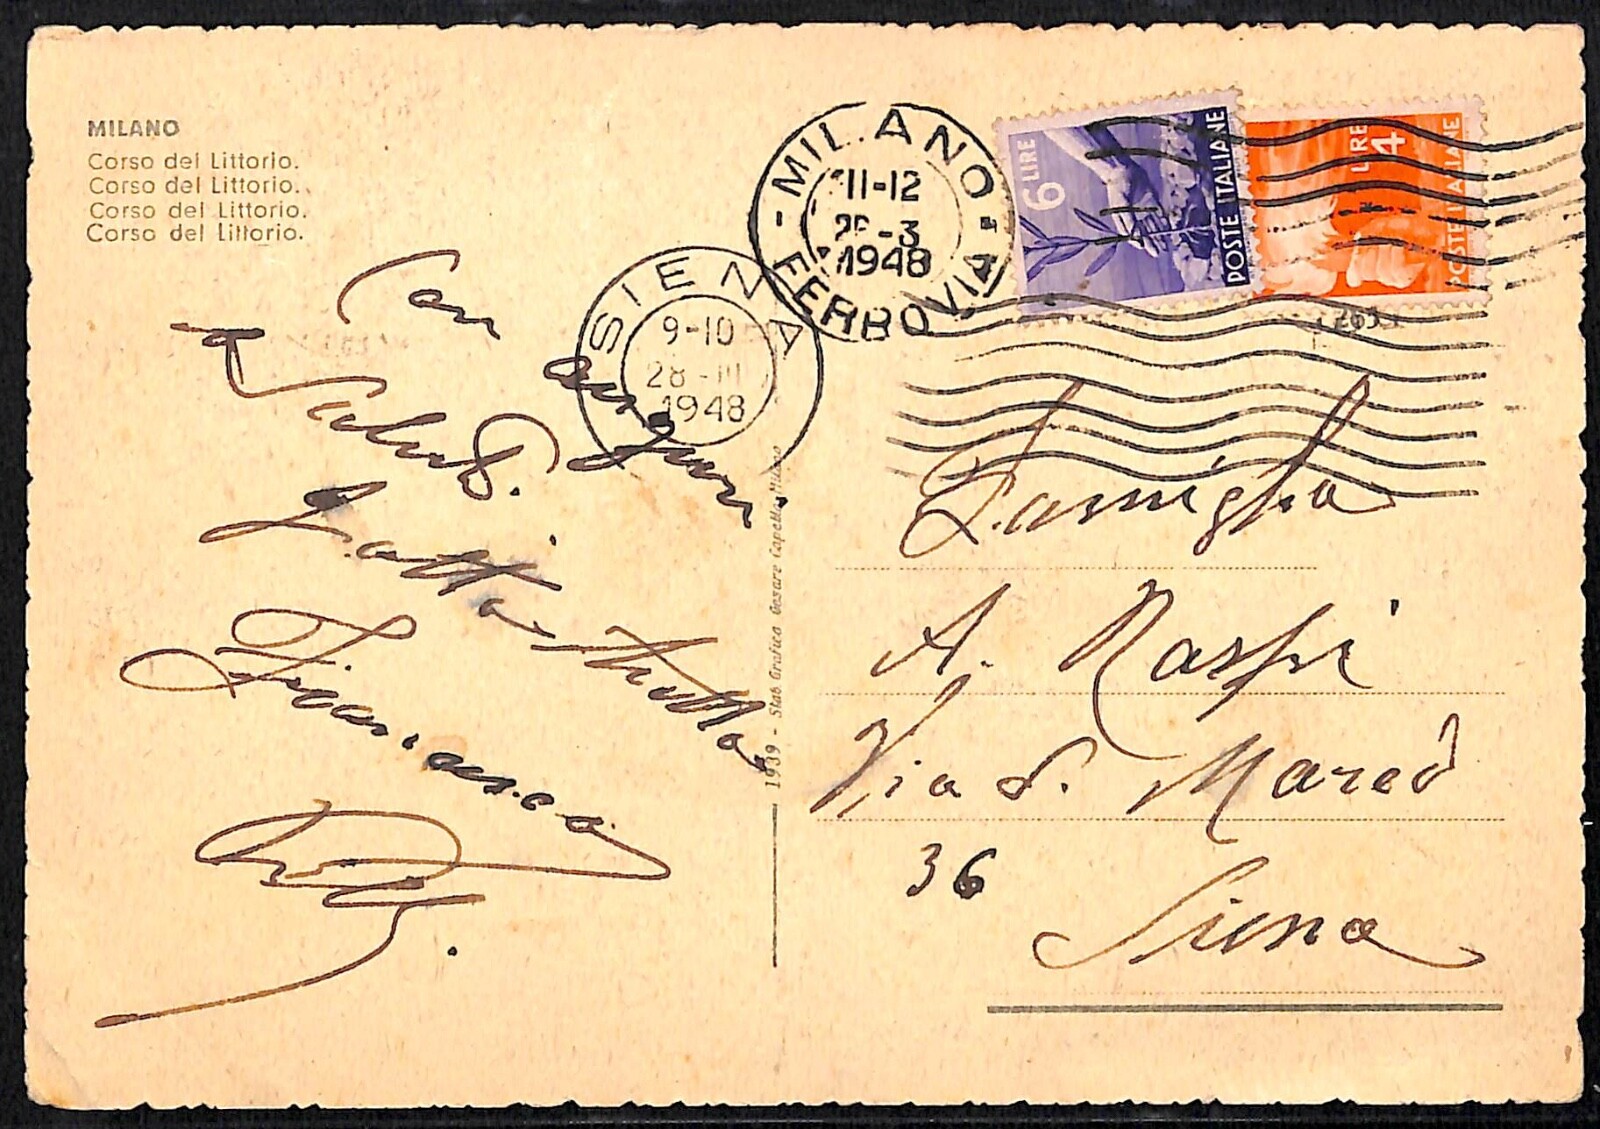 MILANO
Corso del Littorio.
Corso del Littorio.
Corso del Littorio.
Corso del Littorio.
MILANO
11-12
-3
1948
FERROVIA
6 LIRE
POSTE ITALIANE
LIRE 4
POSTE ITALIANE
SIENA
9-10
28-III
1948
Con auguri
e Saluti.
Francesca
1939 - Stab. Grafico Cesare Capello, Milano
Famiglia
A. Raspi
Via S. Marco
36
Siena